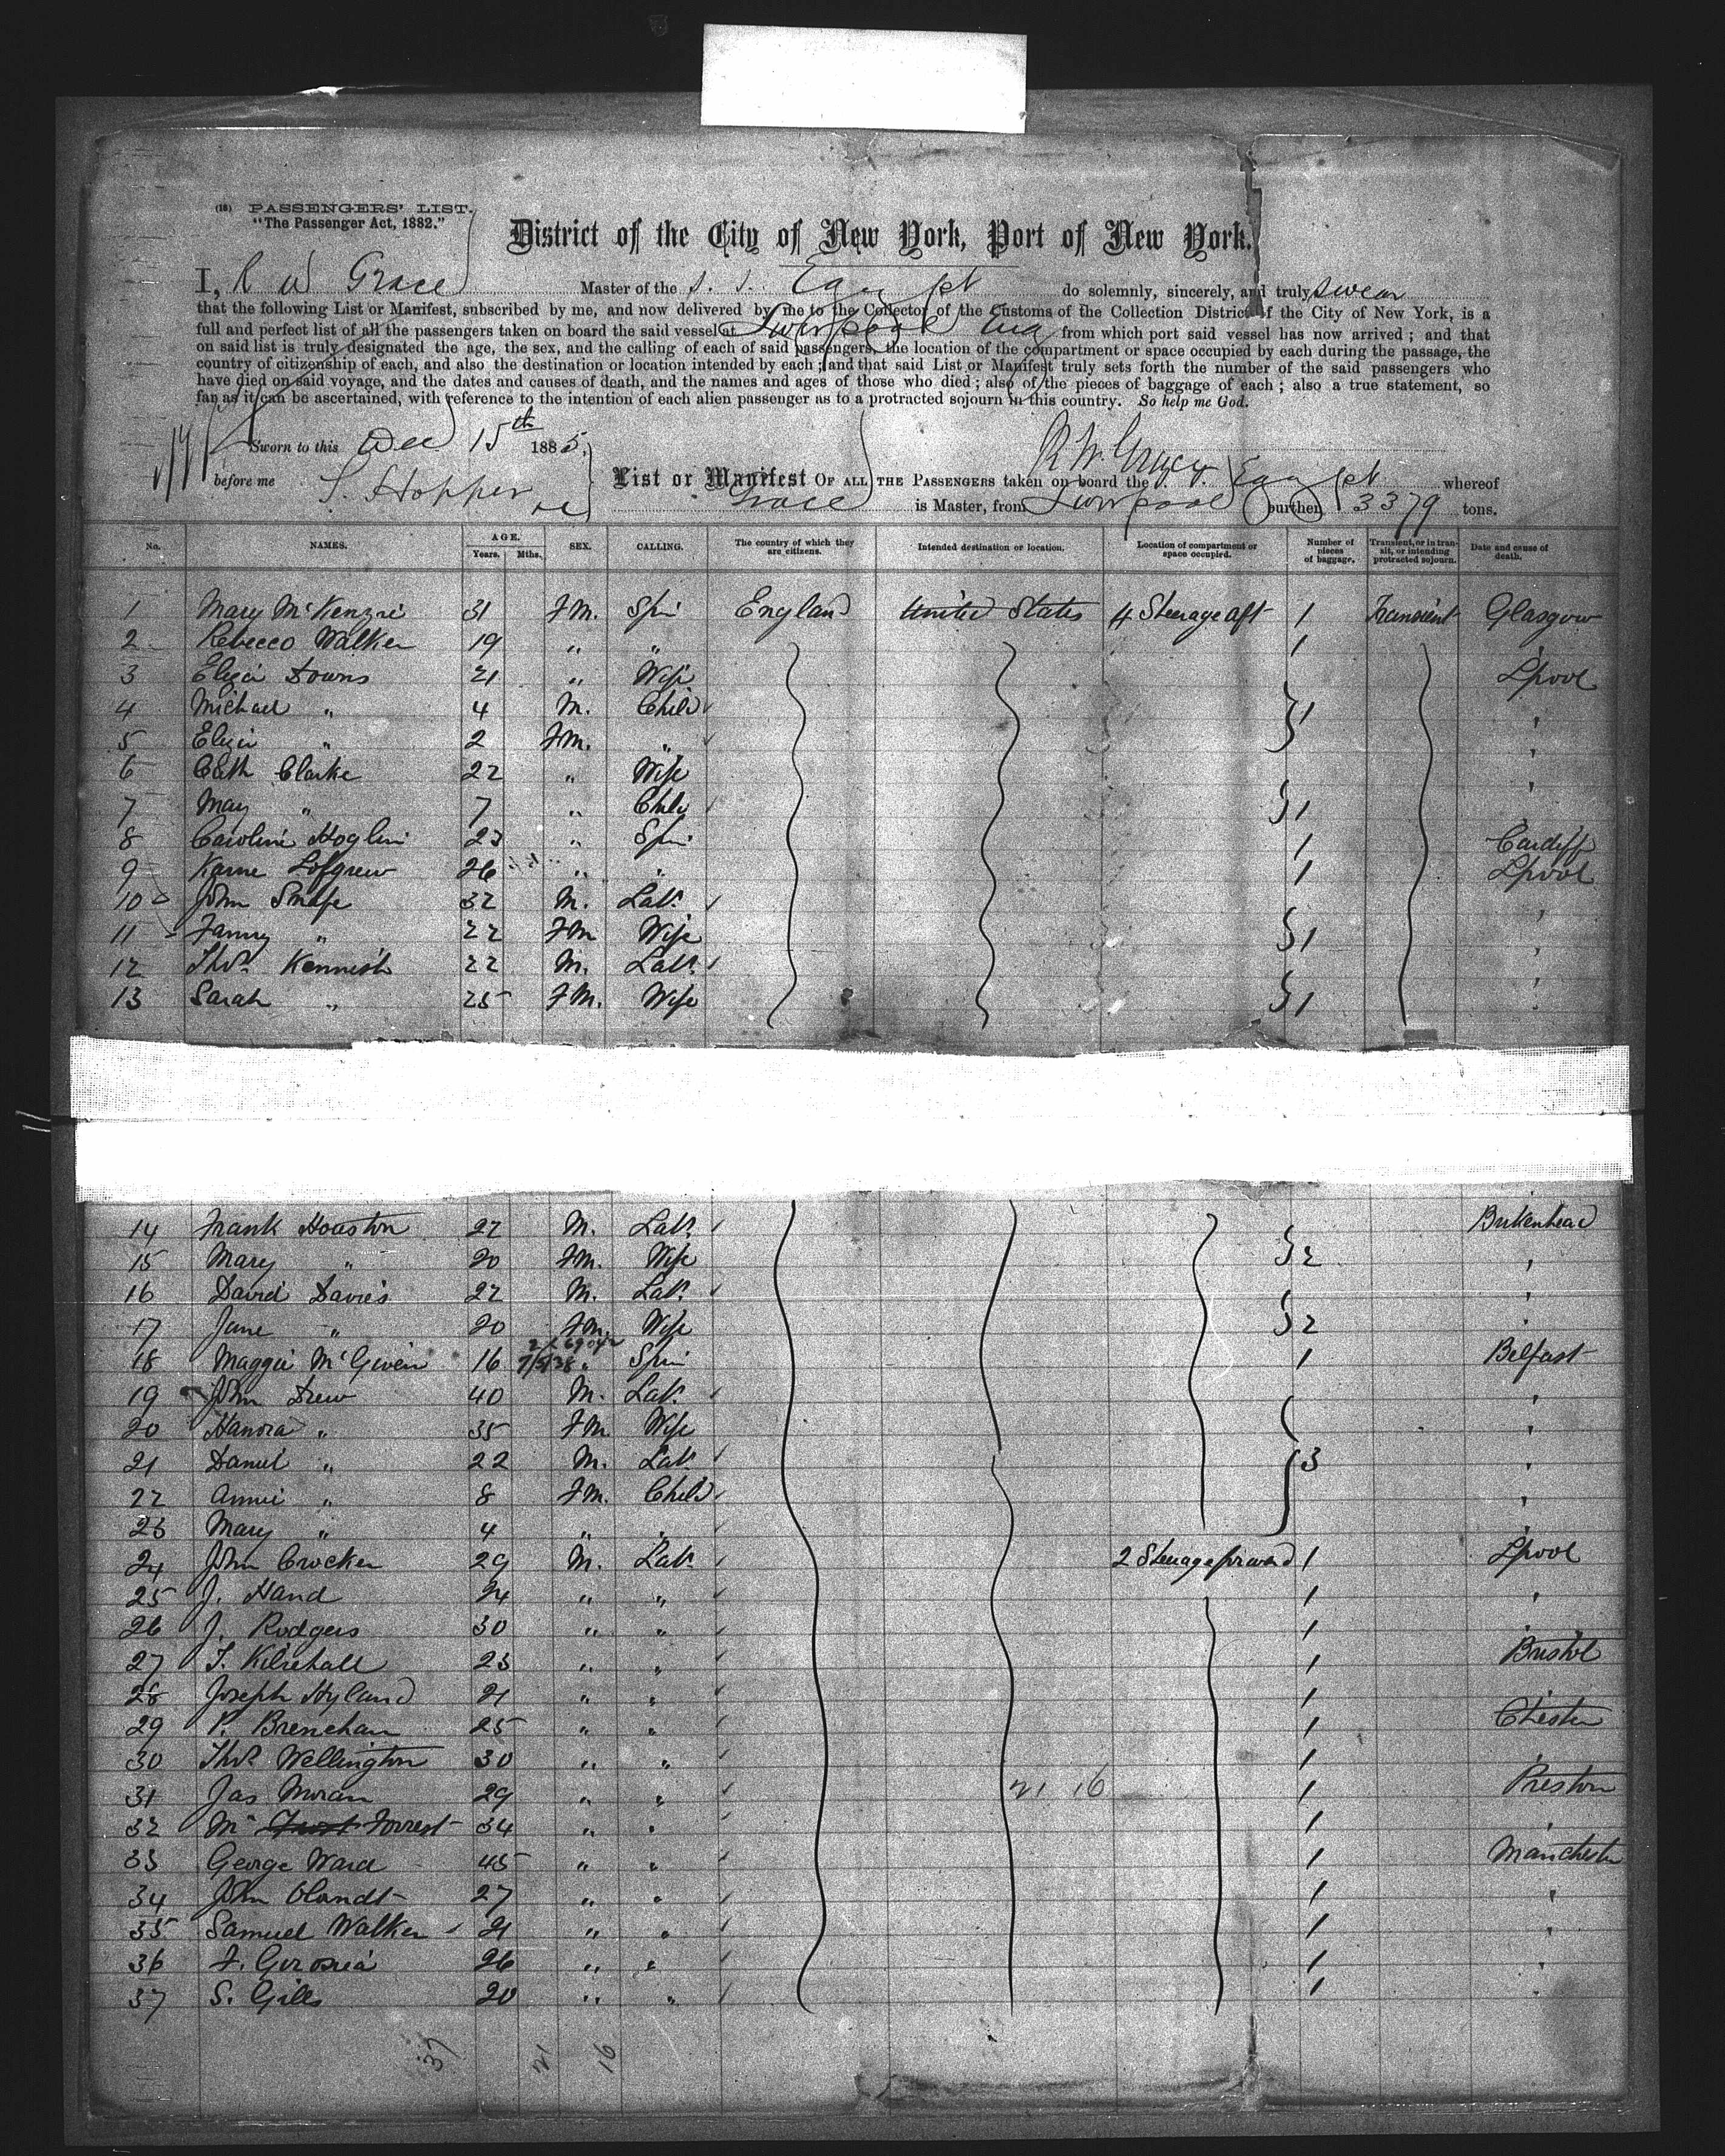 (18) PASSENGERS' LIST.
"The Passenger Act, 1882."
District of the City of New York, Port of New York.
I, R W Grace Master of the S. S. Egypt do solemnly, sincerely, and truly swear
that the following List or Manifest, subscribed by me, and now delivered by me to the Collector of the Customs of the Collection District of the City of New York, is a
full and perfect list of all the passengers taken on board the said vessel at Liverpool Eng from which port said vessel has now arrived; and that
on said list is truly designated the age, the sex, and the calling of each of said passengers, the location of the compartment or space occupied by each during the passage, the
country of citizenship of each, and also the destination or location intended by each; and that said List or Manifest truly sets forth the number of the said passengers who
have died on said voyage, and the dates and causes of death, and the names and ages of those who died; also of the pieces of baggage of each; also a true statement, so
far as it can be ascertained, with reference to the intention of each alien passenger as to a protracted sojourn in this country. So help me God.
Sworn to this Dec 15th 1885,
R. W. Grace
before me S. Hopper
List or Manifest OF ALL THE PASSENGERS taken on board the S. S. Egypt whereof
Grace is Master, from Liverpool burthen 3379 tons.
No. NAMES. AGE. Years. Mths. SEX. CALLING. The country of which they are citizens. Intended destination or location. Location of compartment or space occupied. Number of pieces of baggage. Transient, or in transit, or intending protracted sojourn. Date and cause of death.
1 Mary McKenzie 31 FM. Spin England United States 4 Steerage aft 1 Transient Glasgow
2 Rebecco Walker 19 " " 1 "
3 Eliza Downs 21 " Wife Lpool
4 Michael " 4 M. Child 1 "
5 Eliza " 2 FM. " "
6 Cath Clarke 22 " Wife "
7 May " 7 " Child 1 "
8 Caroline Hoglin 23 " Spin 1 Cardiff
9 Karne Lofgrew 26 " " 1 Lpool
10 John Snape 32 M. Labr. "
11 Fanny " 22 FM Wife 1 "
12 Thos. Kennish 22 M. Labr. "
13 Sarah " 25 FM. Wife 1 "
14 Frank Houston 22 M. Labr. Birkenhead
15 Mary " 20 FM. Wife 2 "
16 David Davies 22 M. Labr. "
17 Jane " 20 FM. Wife 2 "
18 Maggie McGivein 16 " Spin 1 Belfast
19 John Drew 40 M. Labr. "
20 Hanora " 35 FM. Wife "
21 Daniel " 22 M. Labr 3 "
22 Annie " 8 FM. Child "
23 Mary " 4 " " "
24 John Crocker 29 M. Labr. 2 Steerage forward 1 Lpool
25 J. Hand 24 " " 1 "
26 J. Rodgers 30 " " 1 "
27 T. 23 " " 1 Bristol
28 Joseph Hyland 21 " " 1 "
29 P. Brenehan 25 " " 1 Chester
30 Thos Wellington 30 " " 1 "
31 Jas Moran 29 " " 21 16 1 Preston
32 Mr Forrest 34 " " 1 "
33 George Ward 45 " " 1 Manchester
34 John 27 " " 1 "
35 Samuel Walker 21 " " 1 "
36 F. 26 " " 1 "
37 S. Gills 20 " " 1 "
37 21 16